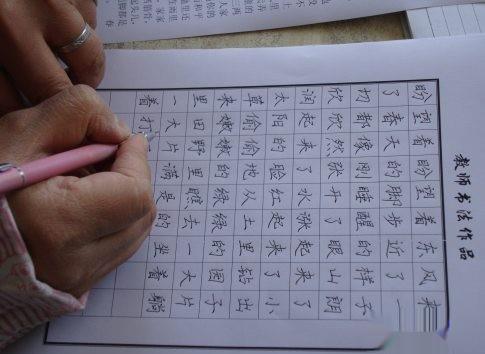 教师书法作品
盼望着盼望着东风来
了春天的脚步近了一
切都像刚睡醒的样子
欣欣然张开了眼山朗
润起来了水涨起来了
太阳的脸红起来了小
草偷偷地从土里钻出
来嫩嫩的绿绿的园子
里田野里瞧去一大片
一大片满是的坐着躺
着打